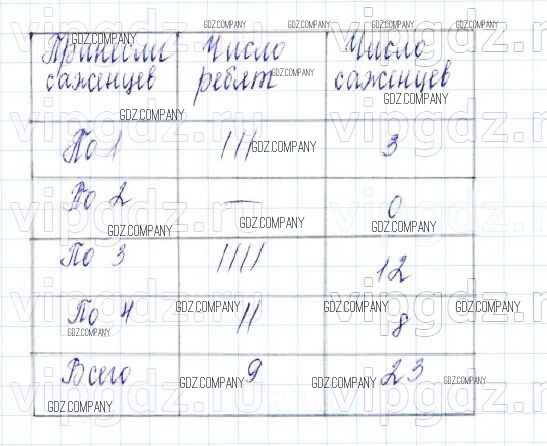 GDZ.COMPANY GDZ.COMPANY GDZ.COMPANY GDZ.COMPANY
vipgdz.ru vipgdz.ru
Принесли саженцев Число ребят Число саженцев
GDZ.COMPANY GDZ.COMPANY GDZ.COMPANY
GDZ.COMPANY
vipgdz.ru vipgdz.ru
По 1 III 3
GDZ.COMPANY
По 2 — 0
vipgdz.ru vipgdz.ru
GDZ.COMPANY GDZ.COMPANY GDZ.COMPANY
По 3 IIII 12
vipgdz.ru vipgdz.ru
По 4 II 8
GDZ.COMPANY GDZ.COMPANY GDZ.COMPANY GDZ.COMPANY
Всего 9 23
vipgdz.ru vipgdz.ru
GDZ.COMPANY GDZ.COMPANY GDZ.COMPANY GDZ.COMPANY